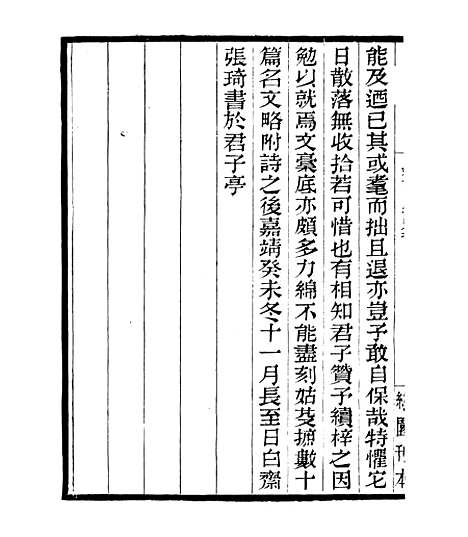 能及迺已其或耄而拙且退亦豈予敢自保哉特懼它
日散落無收拾若可惜也有相知君子贊予續梓之因
勉以就焉文稾底亦頗多力綿不能盡刻姑芟摭數十
篇名文略附詩之後嘉靖癸未冬十一月長至日白齋
張琦書於君子亭
園刊本